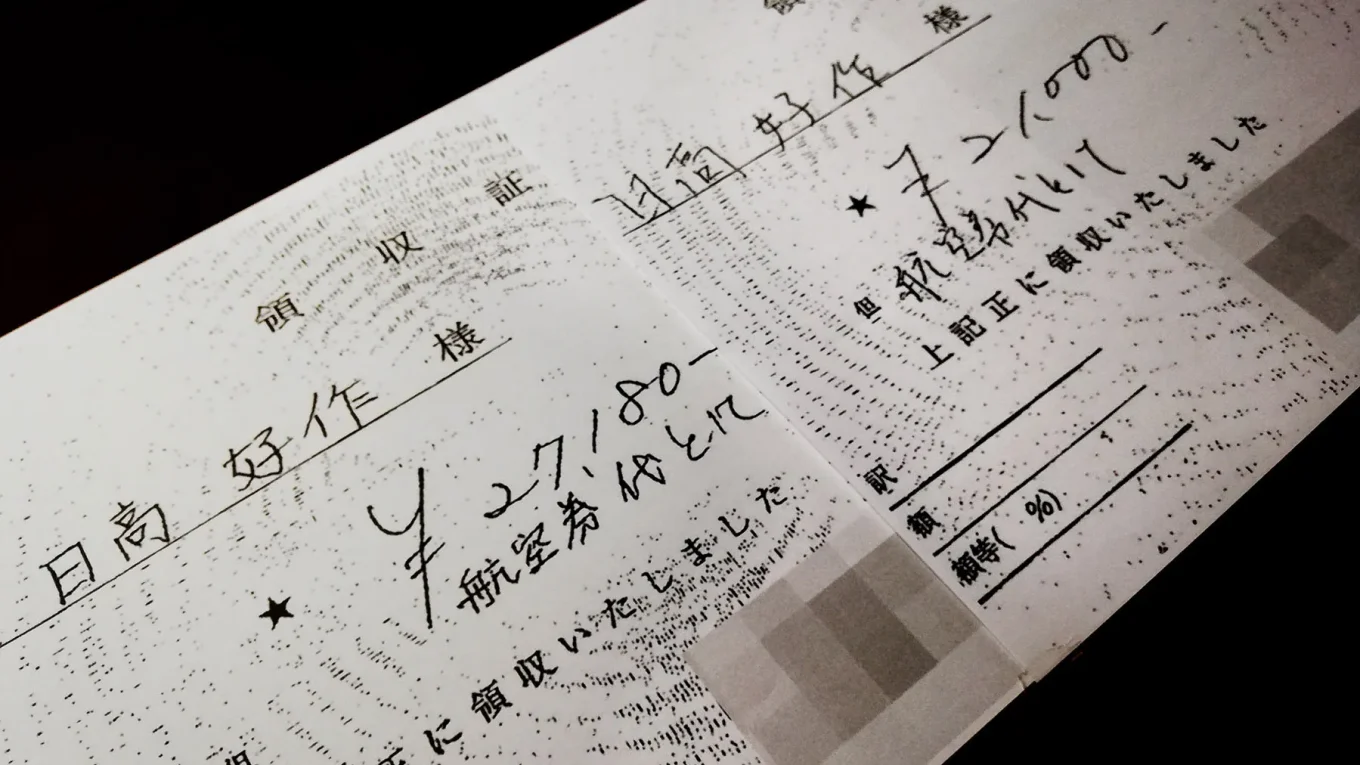 領収証
日高 好作 様
★ ¥27,180-
航空券代として
に領収いたしました
日高 好作 様
★ ¥21,000-
但 航空券代として
上記正に領収いたしました
訳
額
額等( %)